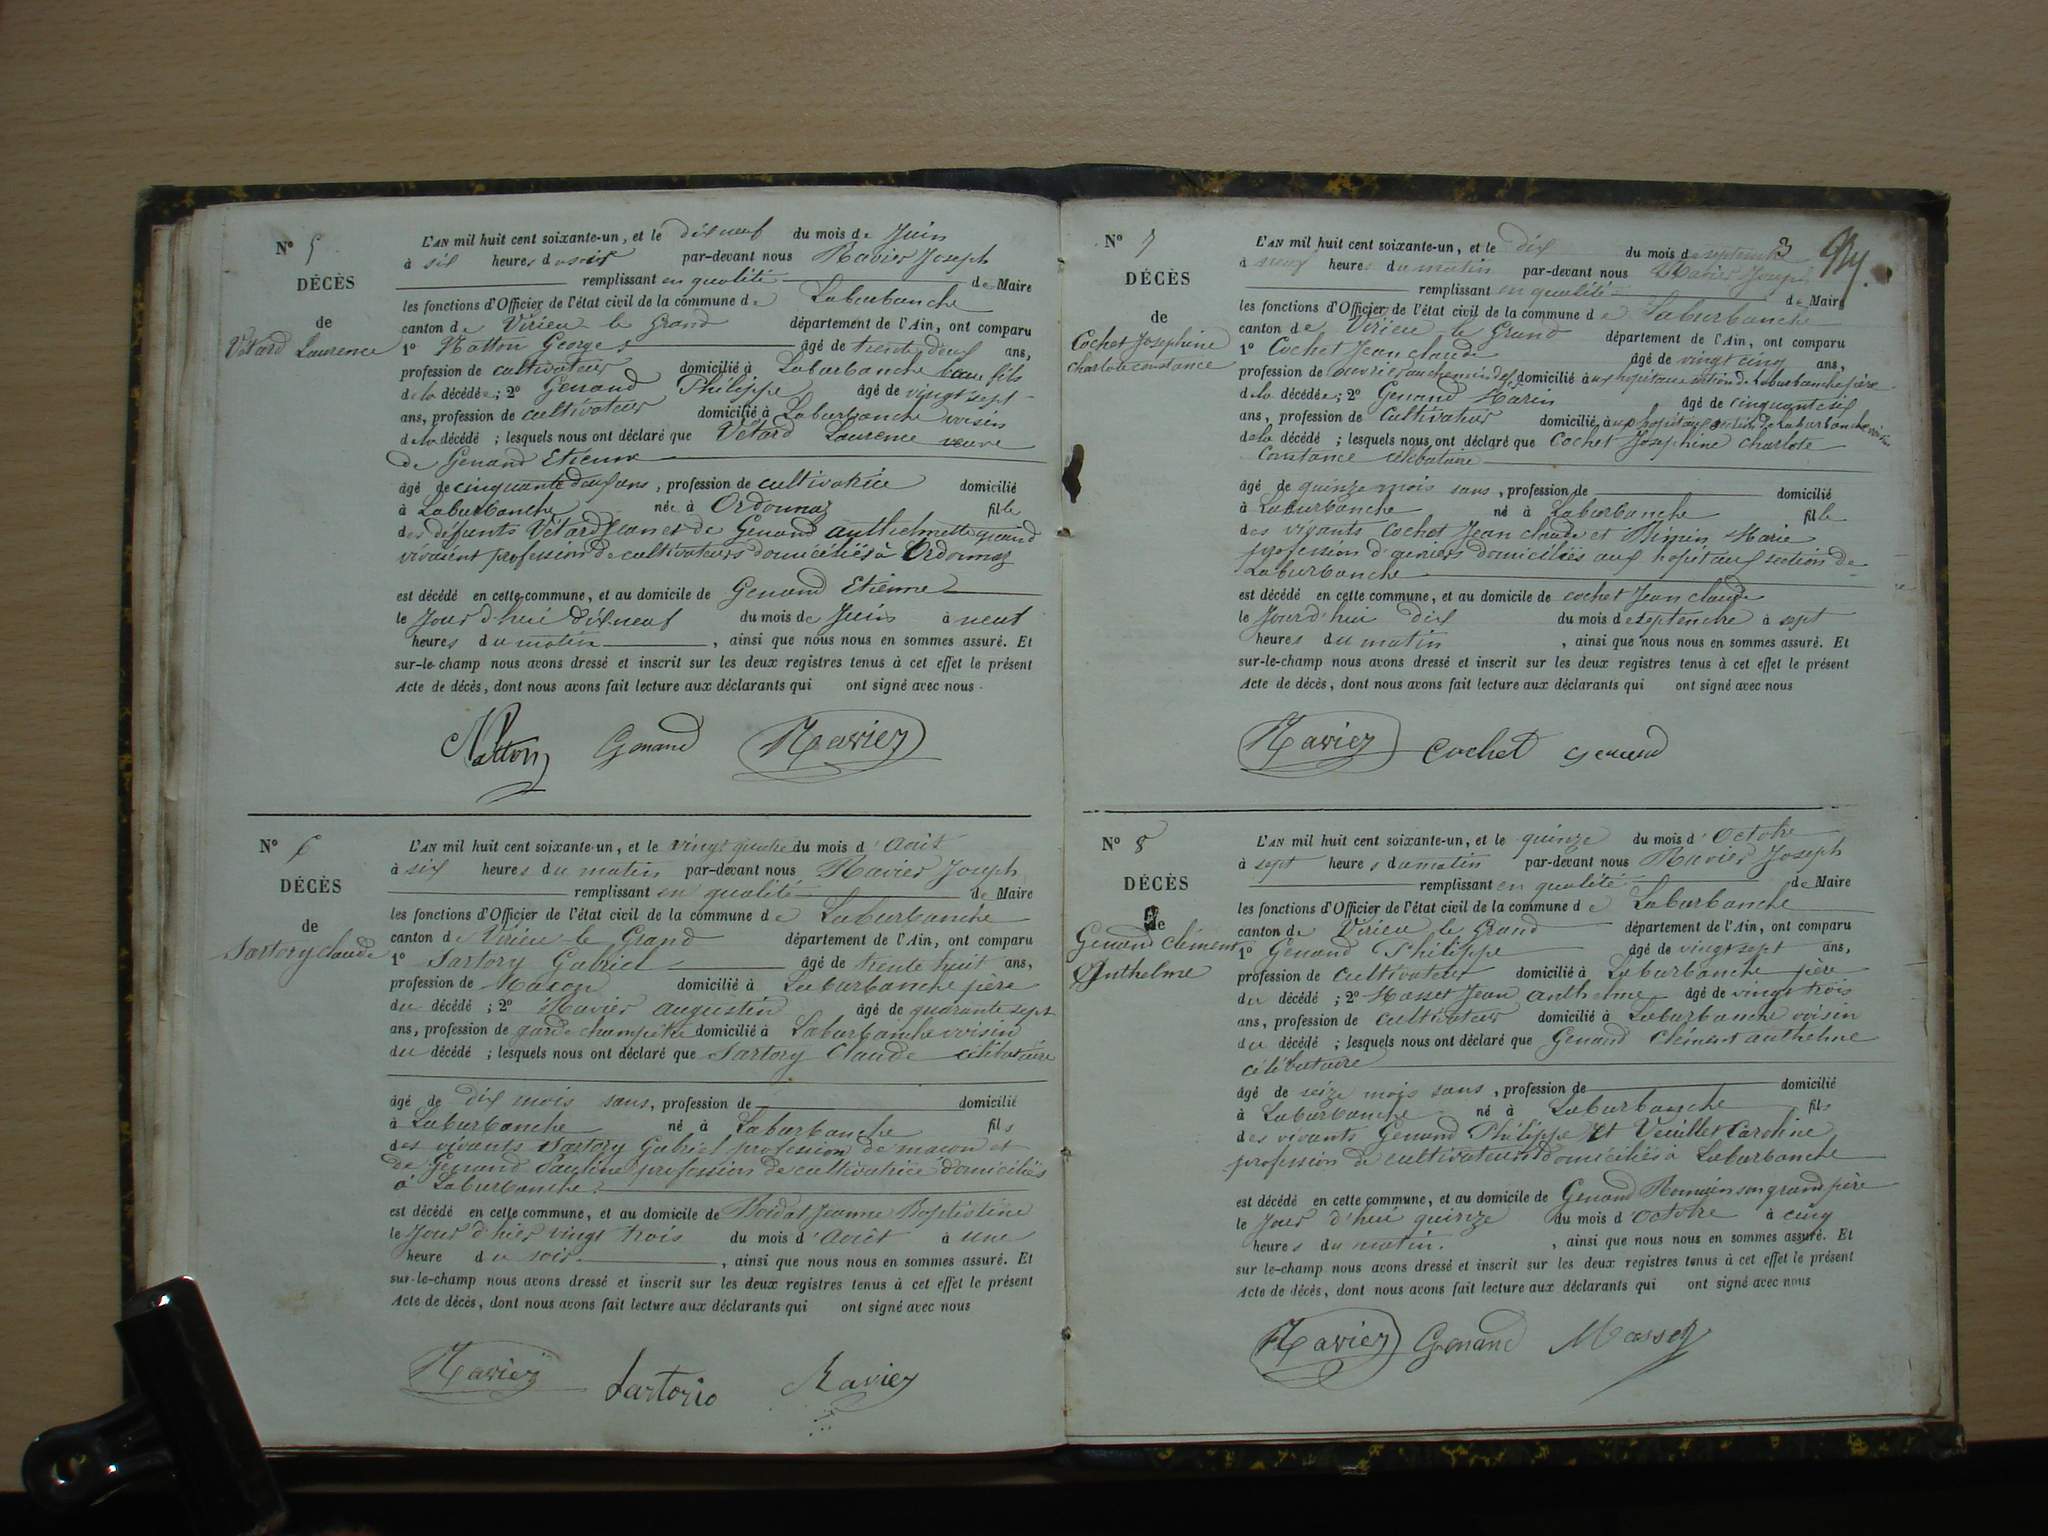 N° 5
DÉCÈS
de
Vétard Laurence
L'AN mil huit cent soixante-un, et le dix neuf du mois de Juin
à six heures du soir par-devant nous Ravier Joseph
remplissant en qualité de Maire
les fonctions d'Officier de l'état civil de la commune de Laburbanche
canton de Virieu le Grand département de l'Ain, ont comparu
1° Natton George âgé de trente deux ans,
profession de cultivateur domicilié à Laburbanche beau fils
de la décédée; 2° Genand Philippe âgé de vingt sept
ans, profession de cultivateur domicilié à Laburbanche voisin
de la décédé ; lesquels nous ont déclaré que Vétard Laurence veuve
de Genand Etienne
âgé de cinquante deux ans, profession de cultivatrice domicilié
à Laburbanche née à Ordonnaz fille
des défunts Vétard Jean et de Genand anthelmette quand
vivaient profession de cultivateurs domiciliés à Ordonnaz
est décédé en cette commune, et au domicile de Genand Etienne
le Jour d'hui dix neuf du mois de Juin à neuf
heures du matin, ainsi que nous nous en sommes assuré. Et
sur-le-champ nous avons dressé et inscrit sur les deux registres tenus à cet effet le présent
Acte de décès, dont nous avons fait lecture aux déclarants qui ont signé avec nous.
Natton Genand Ravier
N° 6
DÉCÈS
de
Sartory claude
L'AN mil huit cent soixante-un, et le vingt quatre du mois d'Août
à six heures du matin par-devant nous Ravier Joseph
remplissant en qualité de Maire
les fonctions d'Officier de l'état civil de la commune de Laburbanche
canton de Virieu-le Grand département de l'Ain, ont comparu
1° Sartory Gabriel âgé de trente huit ans,
profession de Macon domicilié à Laburbanche père
du décédé ; 2° Ravier augustin âgé de quarante sept
ans, profession de garde champêtre domicilié à Laburbanche voisin
du décédé ; lesquels nous ont déclaré que Sartory Claude célibataire
âgé de dix mois sans, profession de domicilié
à Laburbanche né à Laburbanche fils
des vivants Sartory Gabriel profession de macon et
de Genand Pauline profession de cultivatrice domiciliés
à Laburbanche.
est décédé en cette commune, et au domicile de Bordat Jeanne Baptistine
le Jour d'hier vingt trois du mois d'Août à une
heure du soir, ainsi que nous nous en sommes assuré. Et
sur-le-champ nous avons dressé et inscrit sur les deux registres tenus à cet effet le présent
Acte de décès, dont nous avons fait lecture aux déclarants qui ont signé avec nous
Ravier Sartorio Ravier
3
N° 7
DÉCÈS
de
Cochet Josephine
charlote constance
L'AN mil huit cent soixante-un, et le dix du mois de septembre
à neuf heures du matin par-devant nous Ravier Joseph
remplissant en qualité de Maire
les fonctions d'Officier de l'état civil de la commune de Laburbanche
canton de Virieu le Grand département de l'Ain, ont comparu
1° Cochet Jean claude âgé de vingt cinq ans,
profession de ouvrier au chemin de fer domicilié aux hopitaux section de Laburbanche père
de la décédée; 2° Genand Marin âgé de cinquante six
ans, profession de Cultivateur domicilié aux hopitaux section de Laburbanche voisin
de la décédé ; lesquels nous ont déclaré que Cochet Josephine charlote
Constance célibataire
âgé de quinze mois sans, profession de domicilié
à Laburbanche né à Laburbanche fille
des vivants Cochet Jean claude et Marie
profession d' domiciliés aux hopitaux section de
Laburbanche
est décédé en cette commune, et au domicile de cochet Jean claude
le Jourd'hui dix du mois de septembre à sept
heures du matin, ainsi que nous nous en sommes assuré. Et
sur-le-champ nous avons dressé et inscrit sur les deux registres tenus à cet effet le présent
Acte de décès, dont nous avons fait lecture aux déclarants qui ont signé avec nous
Ravier Cochet Genand
N° 8
DÉCÈS
de
Genand Clément
Anthelme
L'AN mil huit cent soixante-un, et le quinze du mois d'Octobre
à sept heures du matin par-devant nous Ravier Joseph
remplissant en qualité de Maire
les fonctions d'Officier de l'état civil de la commune de Laburbanche
canton de Virieu le Grand département de l'Ain, ont comparu
1° Genand Philippe âgé de vingt sept ans,
profession de cultivateur domicilié à Laburbanche père
du décédé ; 2° Masset Jean anthelme âgé de vingt trois
ans, profession de cultivateur domicilié à Laburbanche voisin
du décédé ; lesquels nous ont déclaré que Genand Clément anthelme
célibataire
âgé de seize mois sans, profession de domicilié
à Laburbanche né à Laburbanche fils
des vivants Genand Philippe et Veuillet Caroline
profession de cultivateurs domiciliés à Laburbanche
est décédé en cette commune, et au domicile de Genand Romain son grand père
le Jour d'hui quinze du mois d'Octobre à cinq
heures du matin., ainsi que nous nous en sommes assuré. Et
sur le-champ nous avons dressé et inscrit sur les deux registres tenus à cet effet le présent
Acte de décès, dont nous avons fait lecture aux déclarants qui ont signé avec nous
Ravier Genand Masset